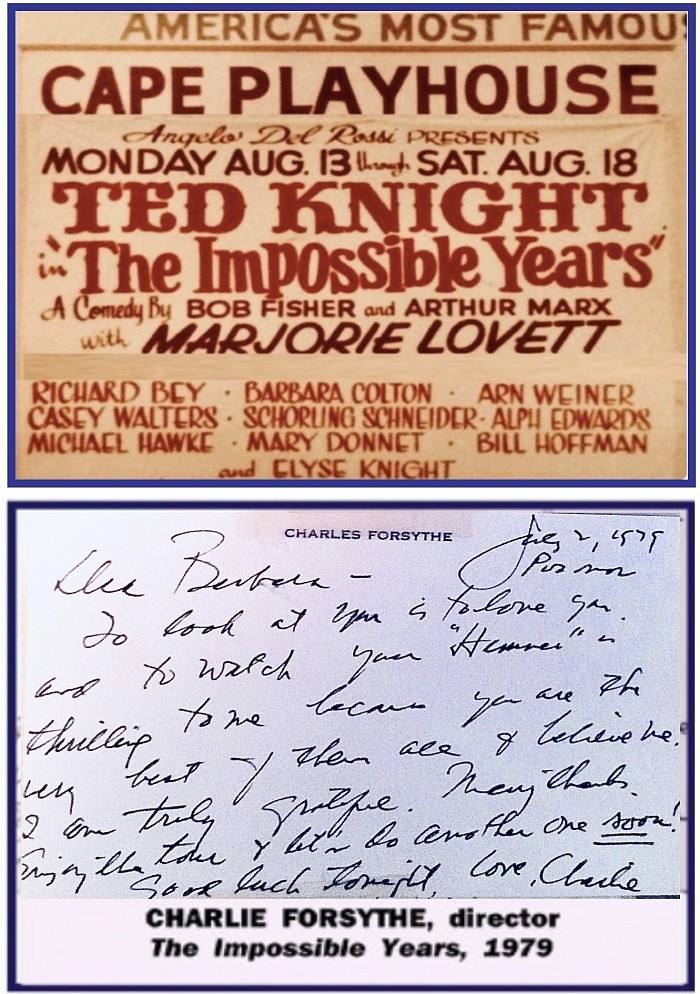 AMERICA'S MOST FAMOUS
CAPE PLAYHOUSE
Angelo Del Rossi PRESENTS
MONDAY AUG. 13 through SAT. AUG. 18
TED KNIGHT
in "The Impossible Years"
A Comedy By BOB FISHER and ARTHUR MARX
with MARJORIE LOVETT
RICHARD BEY · BARBARA COLTON · ARN WEINER
CASEY WALTERS · SCHORLING SCHNEIDER · ALPH EDWARDS
MICHAEL HAWKE · MARY DONNET · BILL HOFFMAN
and ELYSE KNIGHT
CHARLES FORSYTHE
July 2, 1979
Dear Barbara —
To look at you is to love you.
and to watch your "Hammer" is
thrilling to me because you are the
very best of them all & believe me.
I am truly grateful. Many thanks.
Enjoy the tour & let's do another one soon!
Good luck tonight, Love, Charlie
CHARLIE FORSYTHE, director
The Impossible Years, 1979